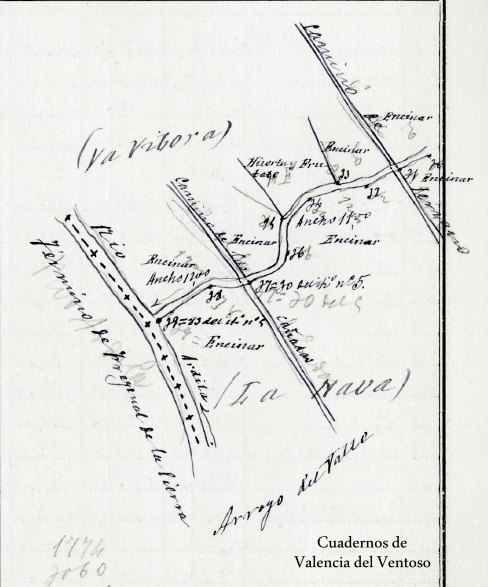 Camino de Jerez
Encinar
(La Vibora)
Encinar
Huerta y Fru-
tales
33
32
31
Encinar
34
Ancho 1,00
35
Encinar
Encinar
36
Camino de las Cañadas
Encinar
Ancho 1,00
38
37=30 del itº nº 5.
39=83 del itº nº
Encinar
Rio Ardila
Término de Fregenal de la Sierra
(La Nava)
Arroyo del Valle
1774
2060
Cuadernos de
Valencia del Ventoso